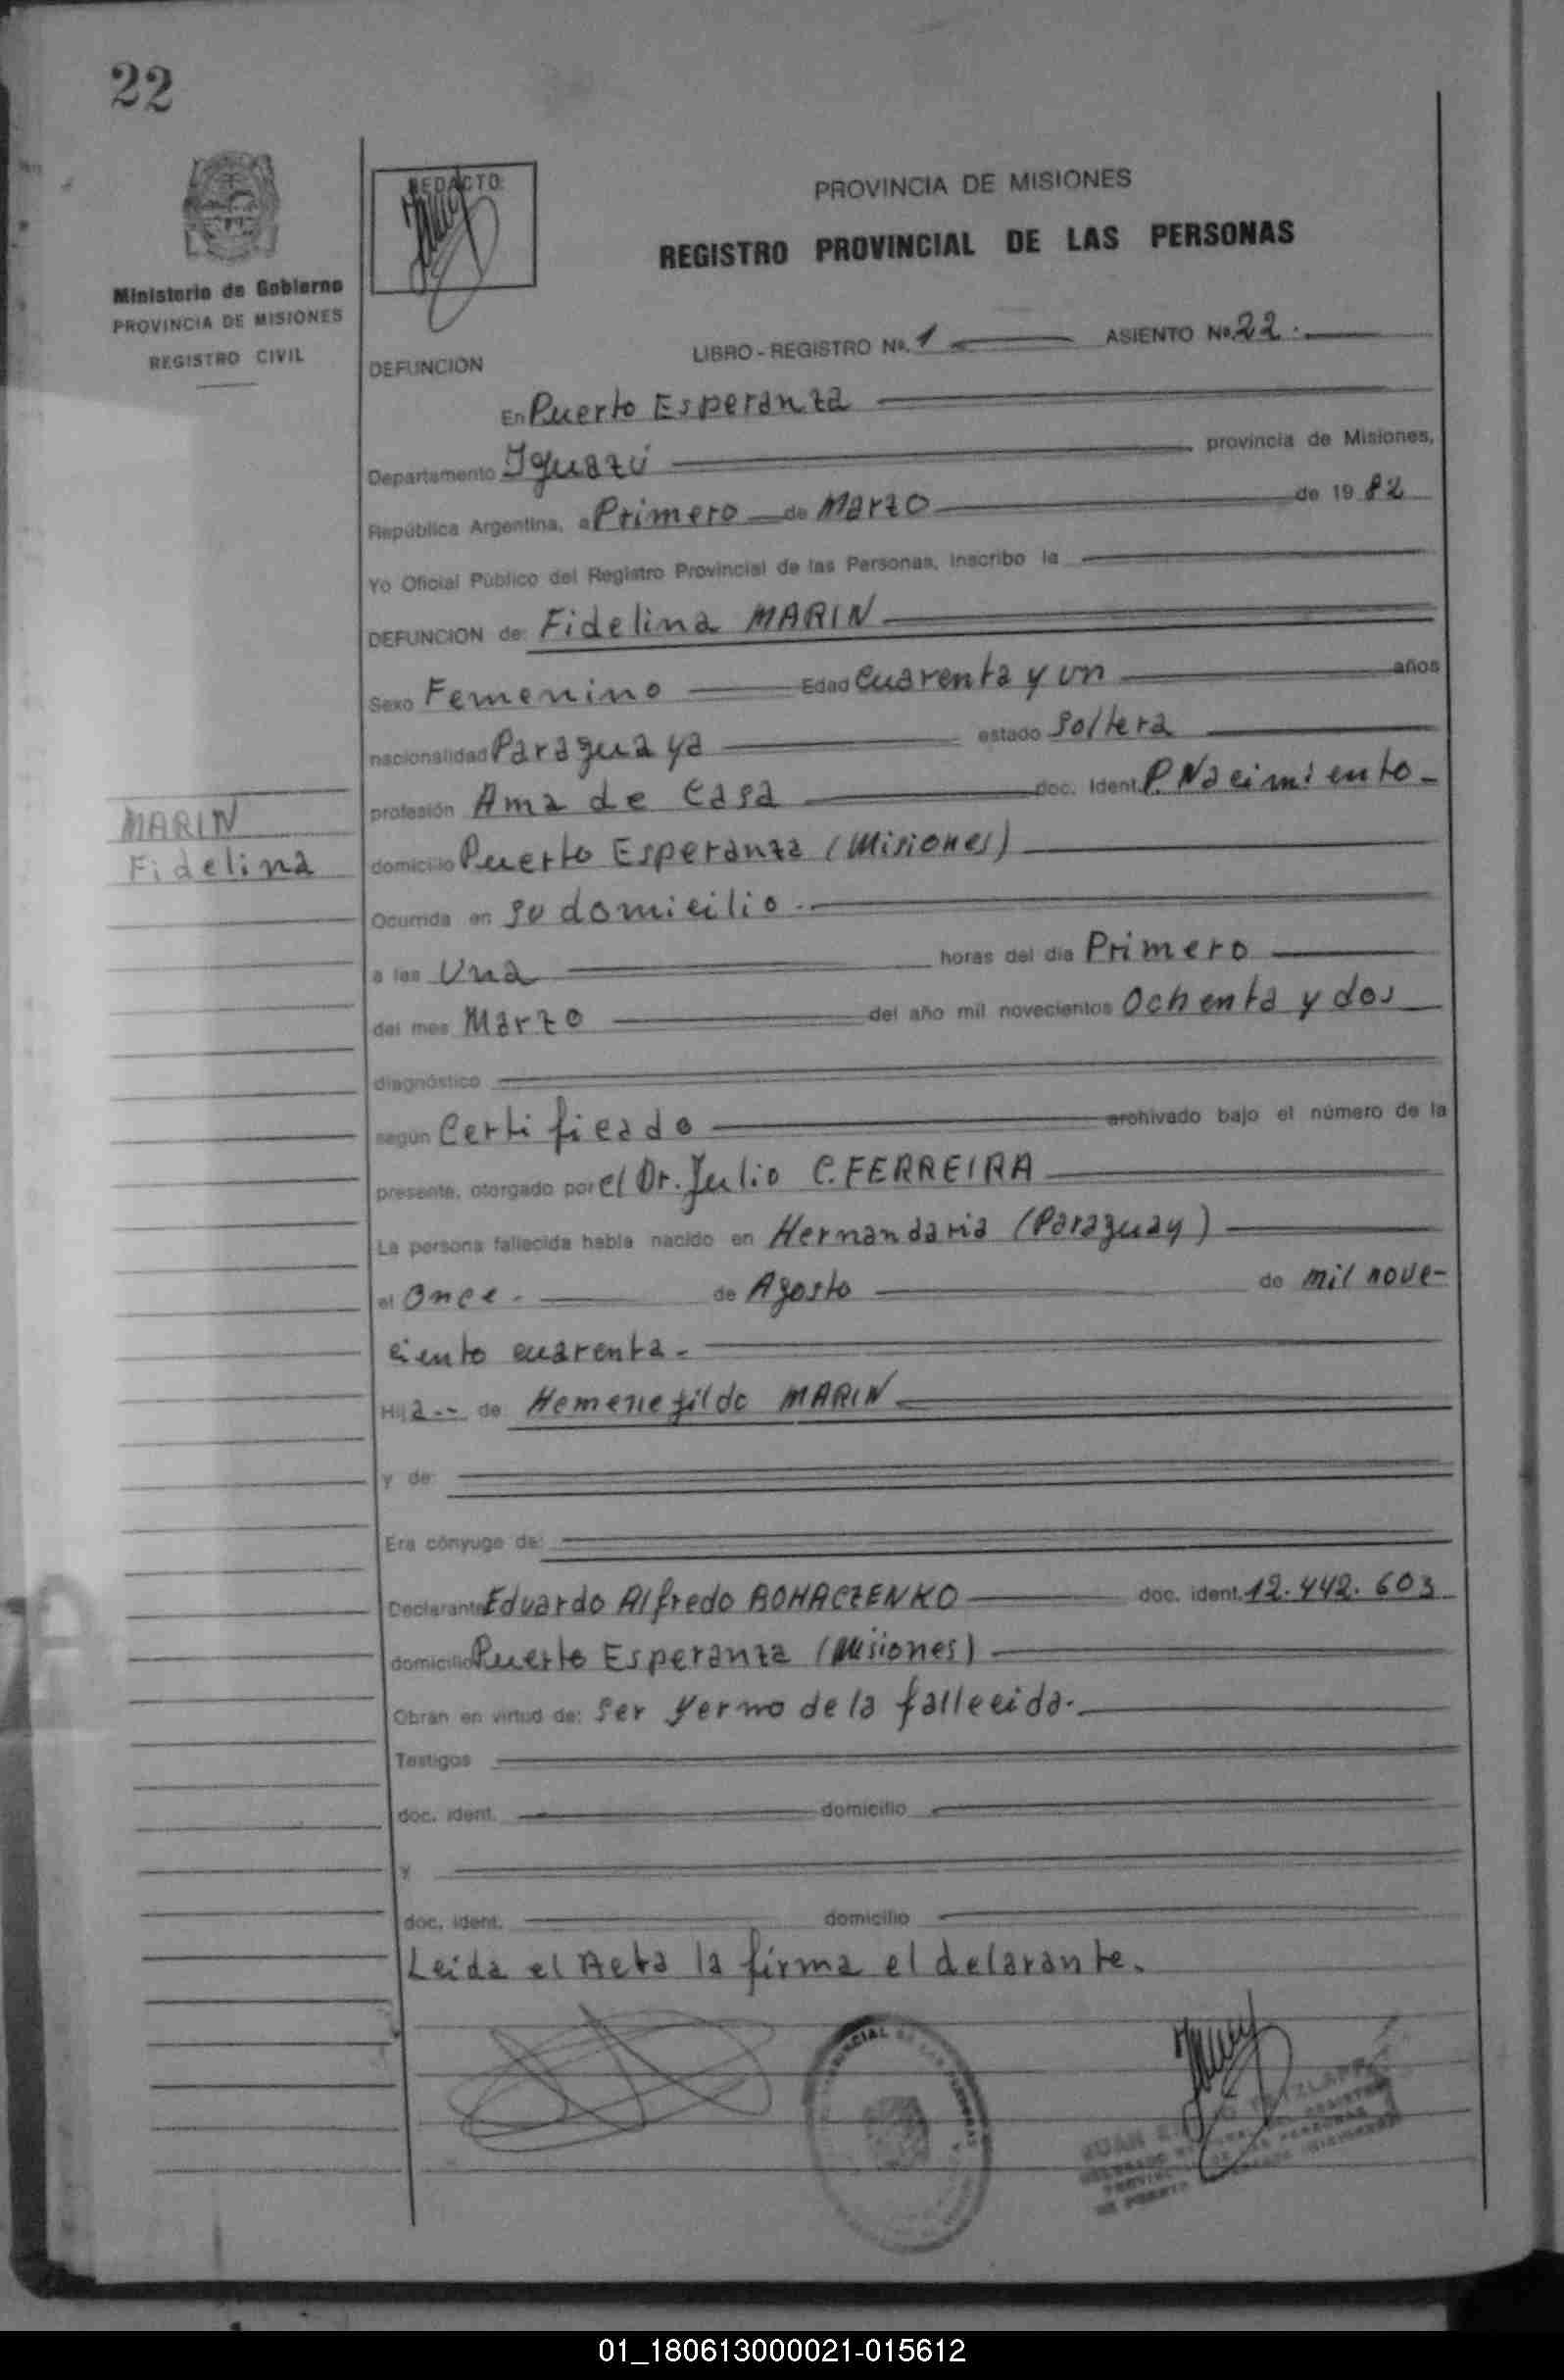 22
Ministerio de Gobierno
PROVINCIA DE MISIONES
REGISTRO CIVIL
REDACTO:
PROVINCIA DE MISIONES
REGISTRO PROVINCIAL DE LAS PERSONAS
DEFUNCION
LIBRO - REGISTRO Nº. 1 ASIENTO Nº. 22.
En Puerto Esperanza
Departamento Iguazú provincia de Misiones,
República Argentina, a Primero de Marzo de 19 82
Yo Oficial Público del Registro Provincial de las Personas, inscribo la
DEFUNCION de: Fidelina MARIN
Sexo Femenino Edad Cuarenta y un años
nacionalidad Paraguaya estado Soltera
profesión Ama de Casa doc. Ident. P. Nacimiento-
MARIN
Fidelina
domicilio Puerto Esperanza (Misiones)
Ocurrida en su domicilio.-
a las Una horas del día Primero
del mes Marzo del año mil novecientos Ochenta y dos
diagnóstico
según Certificado archivado bajo el número de la
presente, otorgado por el Dr. Julio C. FERREIRA
La persona fallecida había nacido en Hernandaria (Paraguay)
el Once.- de Agosto de mil nove-
ciento cuarenta.-
Hija-- de Hemenegildo MARIN
y de:
Era cónyuge de:
Declarante Eduardo Alfredo BOHACZENKO doc. ident. 12.442.603
domicilio Puerto Esperanza (Misiones)
Obran en virtud de: Ser yerno de la fallecida.-
Testigos
doc. ident. domicilio
y
doc. ident. domicilio
Leida el Acta la firma el delarante.
JUAN
01_180613000021-015612